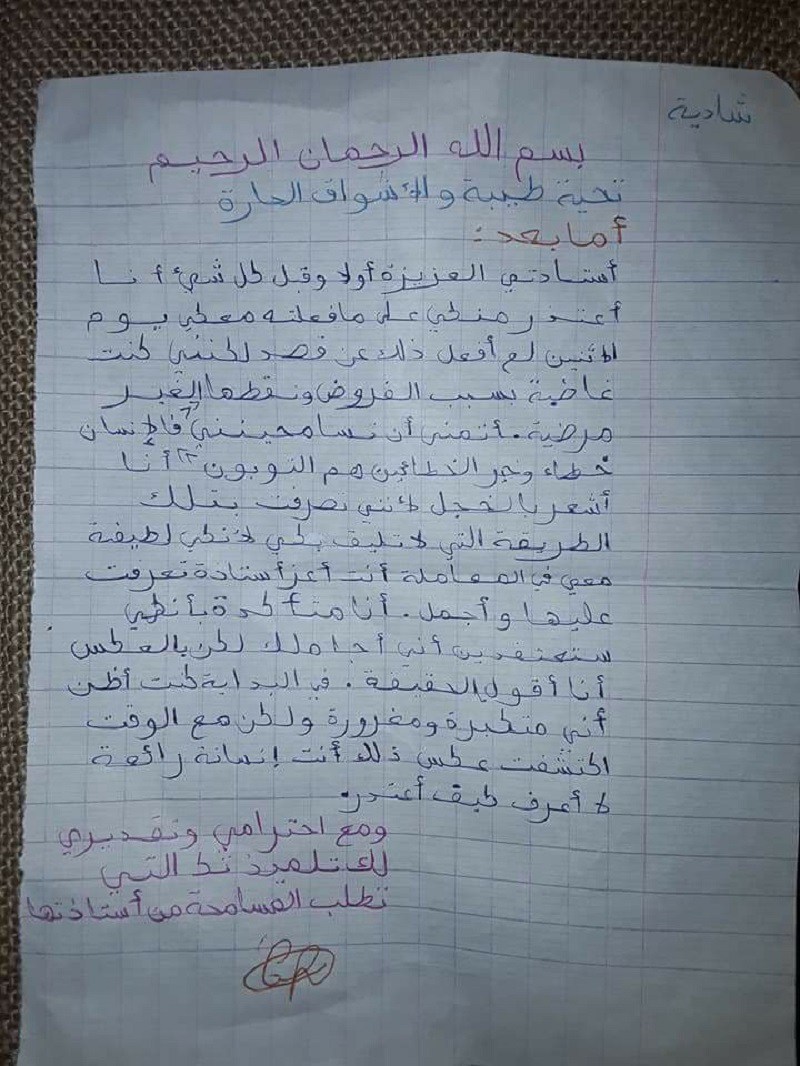 شادية
بسم الله الرحمان الرحيم
تحية طيبة والأشواق الحارة
أما بعد:
أستادتي العزيزة أولا وقبل كل شيئ أنا
أعتدر منكي على مافعلته معكي يوم
الاثنين لم أفعل ذلك عن قصد لكنني كنت
غاضبة بسبب الفروض ونقطها الغير
مرضية. أتمنى أن تسامحينني "فالإنسان
خطاء وخير الخطائين هم التوبون" أنا
أشعر بالخجل لأنني تصرفت بتلك
الطريقة التي لاتليق بكي لأنكي لطيفة
معي في المعاملة أنت أعز أستادة تعرفت
عليها وأجمل. أنا متأكدة بأنكي
ستعتقدين أني أجاملك لكن بالعكس
أنا أقول الحقيقة. في البداية كنت أظن
أني متكبرة ومغرورة ولكن مع الوقت
اكتشفت عكس ذلك أنت إنسانة رائعة
لا أعرف كيف أعتدر.
ومع احترامي وتقديري
لك تلميذتك التي
تطلب المسامحة من أستاذتها